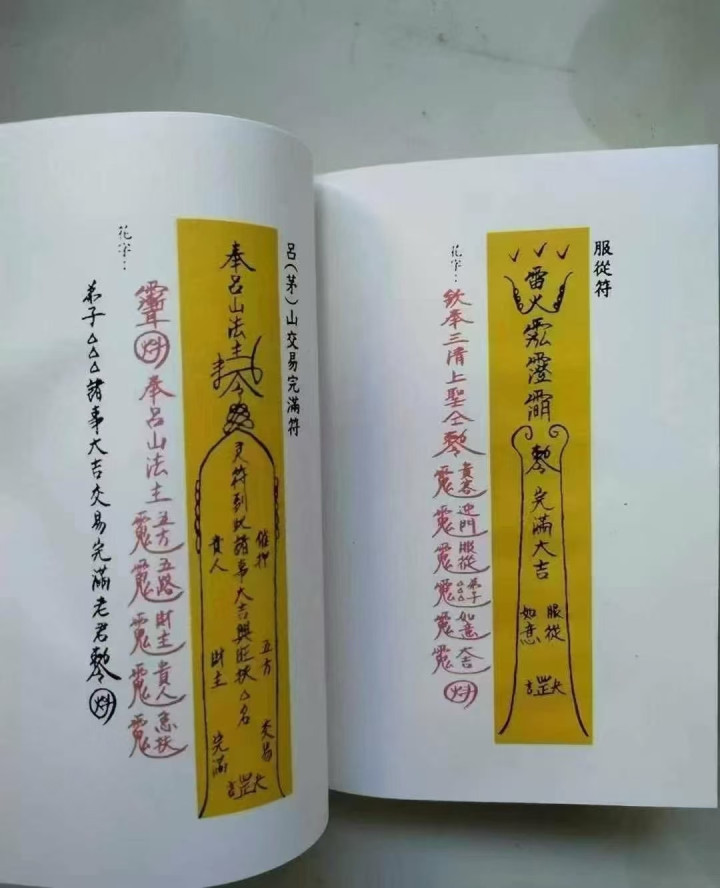 服從符
雷火
勅
完滿大吉
服從
如意
花字：
欽奉三清上聖仝勅
貴客
迎門
服從
△△△弟子
如意
大吉
呂(茅)山交易完滿符
奉呂山法主
灵符到処諸事大吉興旺扶△名
催押
貴人
五方
財主
交易
完滿
花字：
奉呂山法主
五方
五路
財主
貴人
急扶
弟子△△△諸事大吉交易完滿老君勅